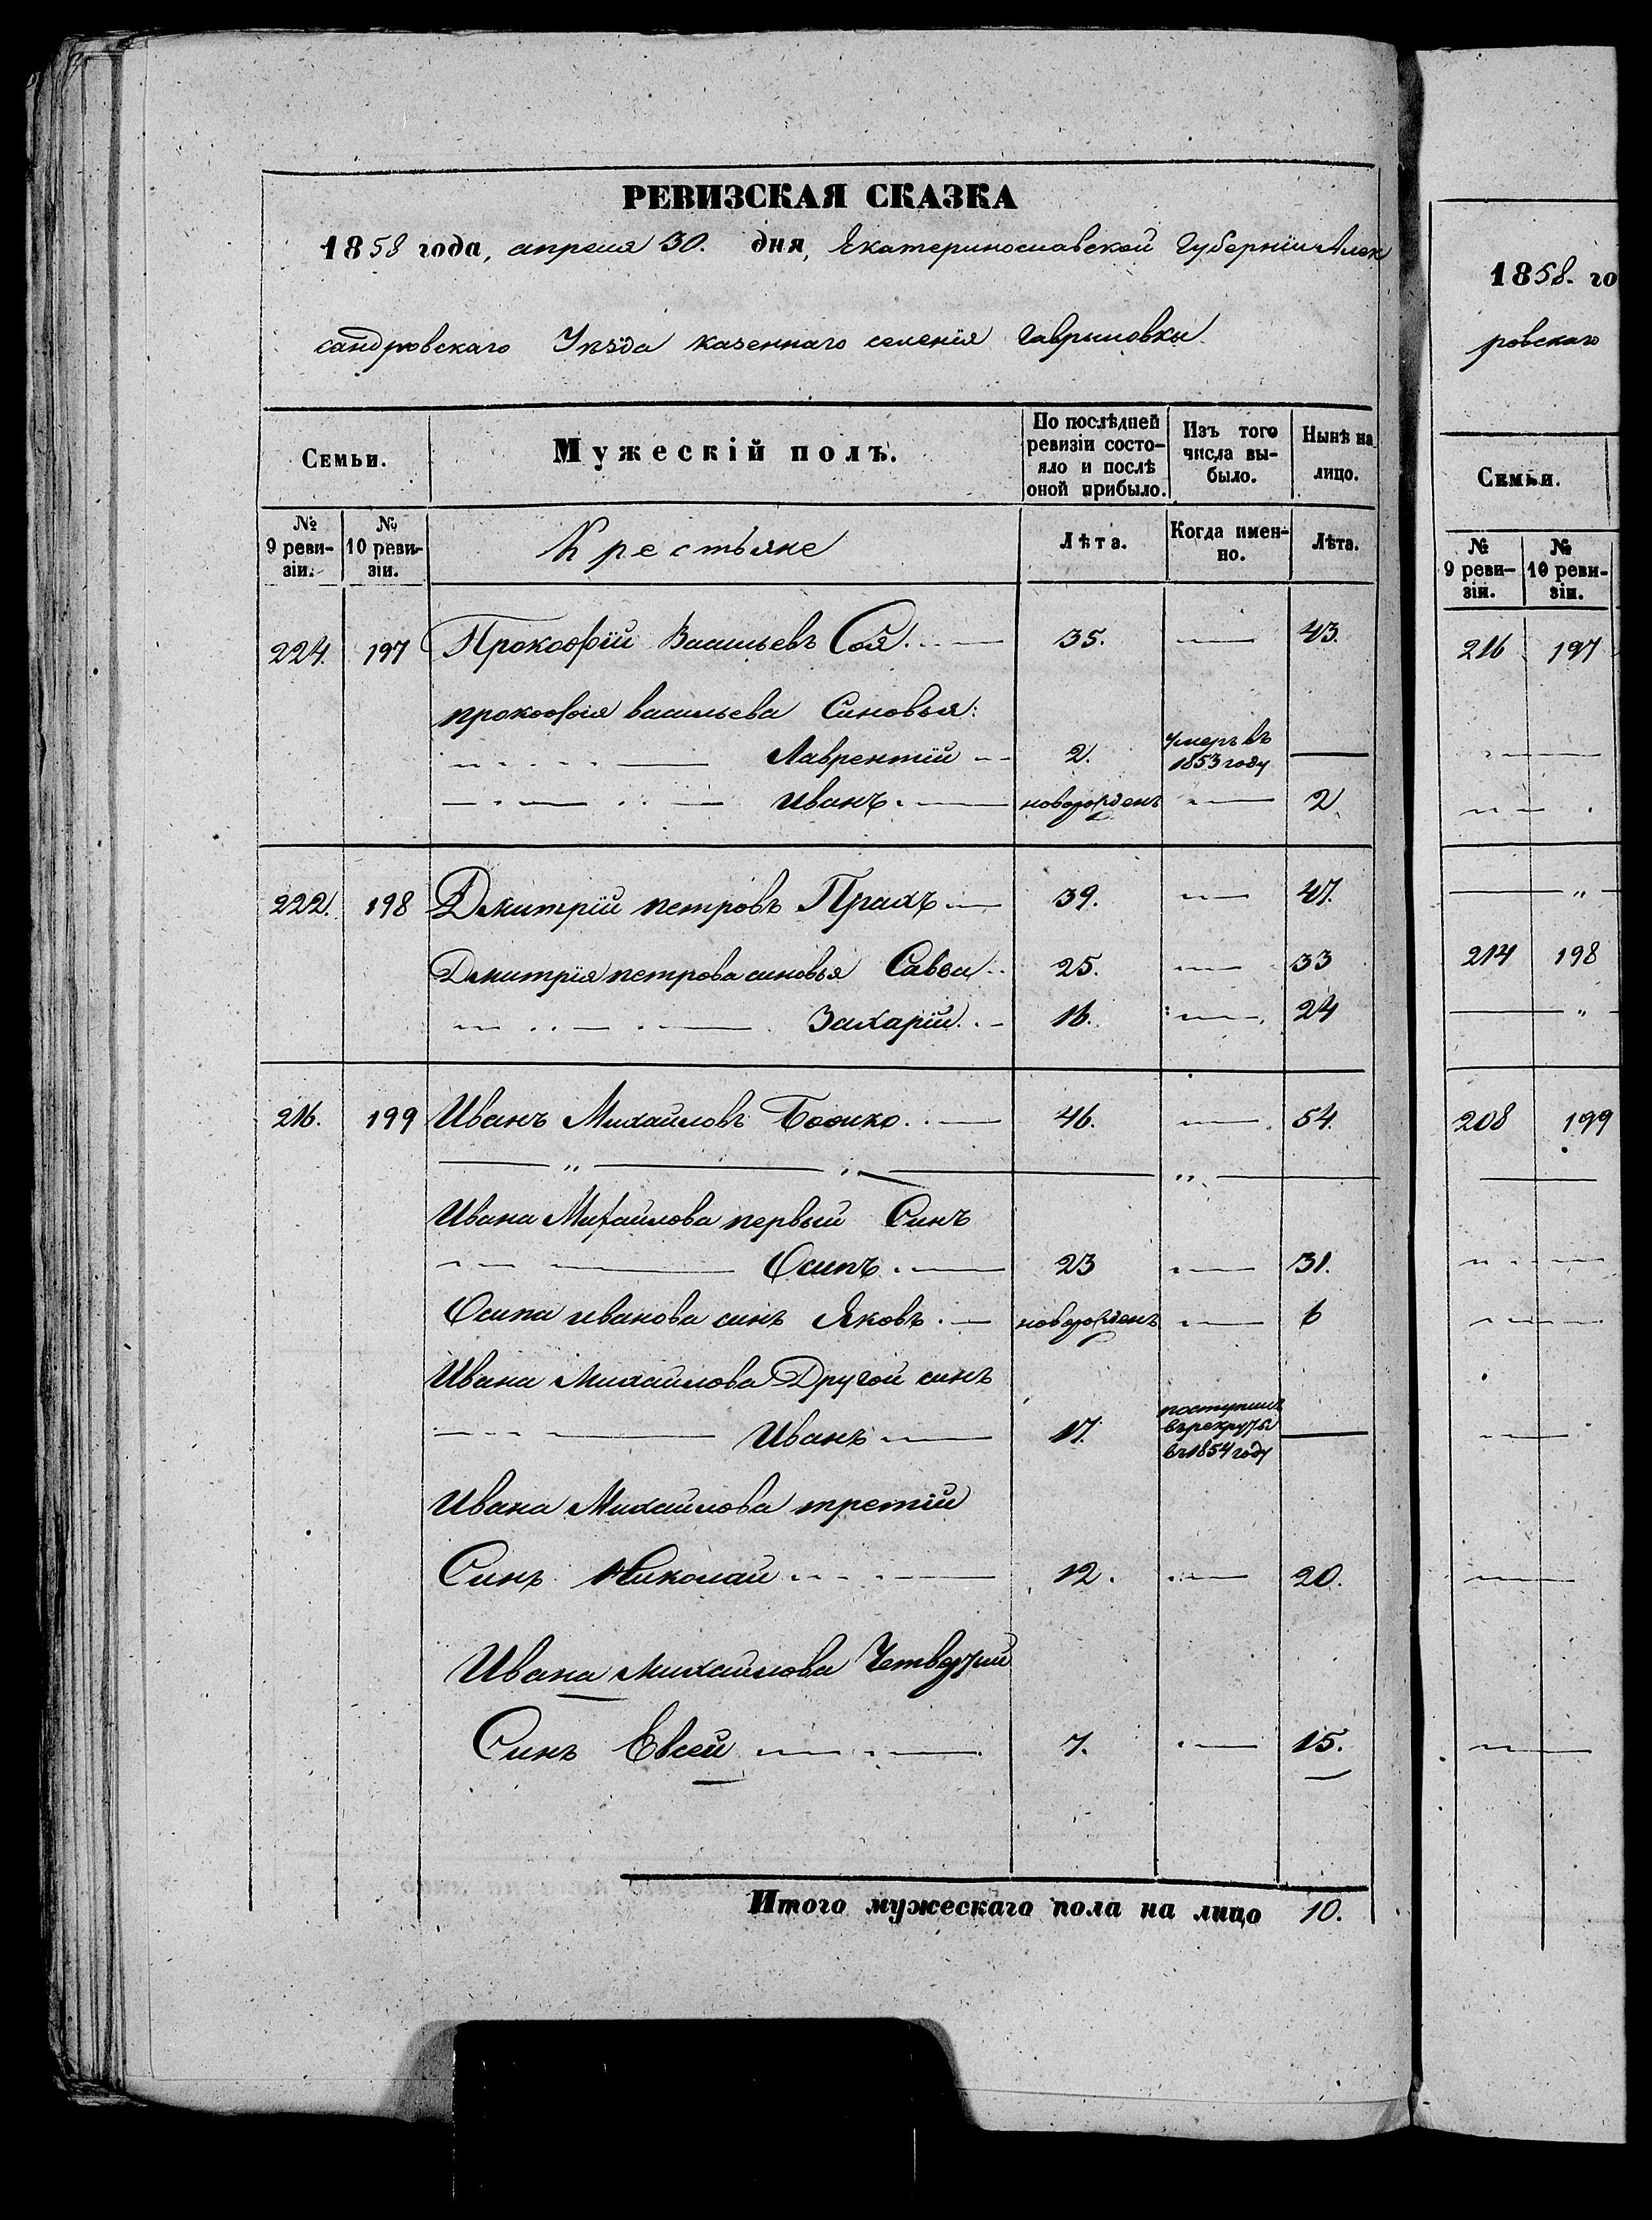 РЕВИЗСКАЯ СКАЗКА
1858 года, апреля 30. дня, Екатеринославской Губерніи Алек
сандровскаго Уѣзда казеннаго селенія Гаврыловки
Семьи.
Мужескій полъ.
По послѣдней ревизіи состо-яло и послѣ оной прибыло.
Изъ того числа вы-было.
Нынѣ на лицо.
№ 9 реви-зіи.
№ 10 реви-зіи.
Крестьяне
Лѣта.
Когда имен-но.
Лѣта.
224. 197 Прокофій Васильевъ Соя 35. 43.
прокофія васильева Синовья:
Лаврентій 2. умеръ въ 1853 году
Иванъ новорожденъ 2
222. 198 Дмитрій петровъ Прахъ 39. 47.
Дмитрія петрова синовья Савва 25. 33
Захарій 16. 24
216. 199 Иванъ Михайловъ 46. 54.
Ивана Михайлова первый Синъ
Осипъ 23 31.
Осипа иванова синъ Яковъ новорожденъ 6
Ивана Михайлова Другой синъ
Иванъ 17. поступилъ въ рекруты въ 1854 году
Ивана Михайлова третій
Синъ Николай 12. 20.
Ивана михайлова Четвертий
Синъ Евсей 7. 15.
Итого мужескаго пола на лицо 10.
1858. го
ровскаго
Семьи.
№ 9 реви-зіи.
№ 10 реви-зіи.
216 197
214 198
208 199